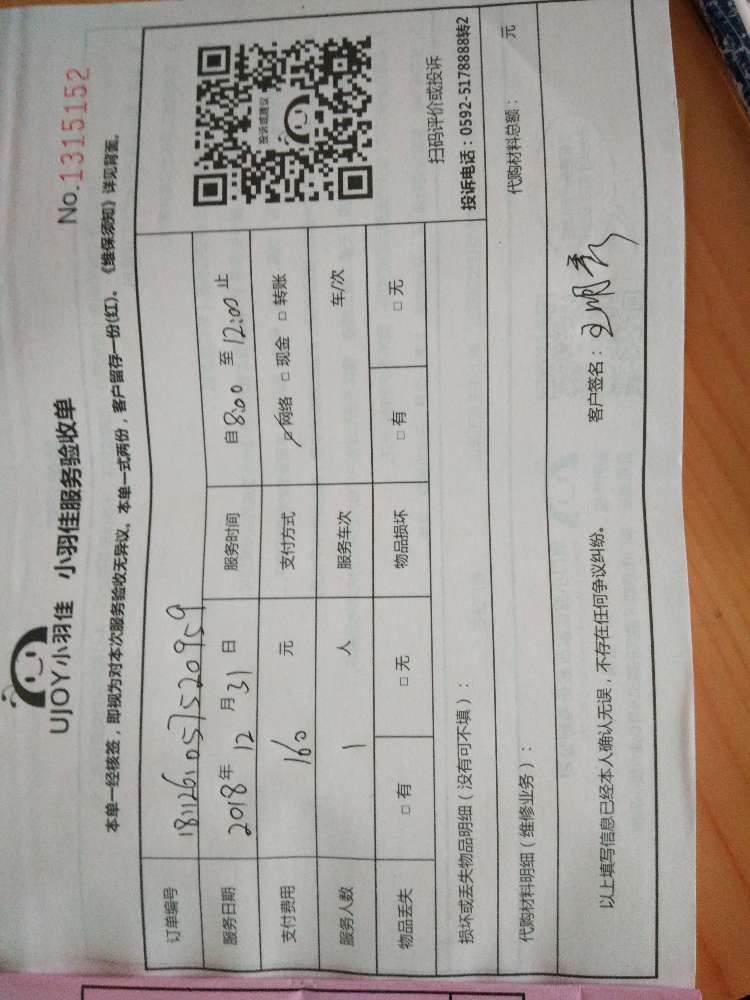 UJOY小羽佳 小羽佳服务验收单
No.1315152
本单一经核签，即视为对本次服务验收无异议。本单一式两份，客户留存一份(红)。《维保须知》详见背面。
订单编号 1811261057520959
服务日期 2018年 12月 31日 服务时间 自8:00 至 12:00 止
支付费用 160 元 支付方式 □网络 □现金 □转账
服务人数 1 人 服务车次 车/次
物品丢失 □有 □无 物品损坏 □有 □无
投诉或建议
扫码评价或投诉
投诉电话：0592-5178888转2
损坏或丢失物品明细（没有可不填）：
代购材料明细（维修业务）： 代购材料总额： 元
以上填写信息已经本人确认无误，不存在任何争议纠纷。 客户签名：